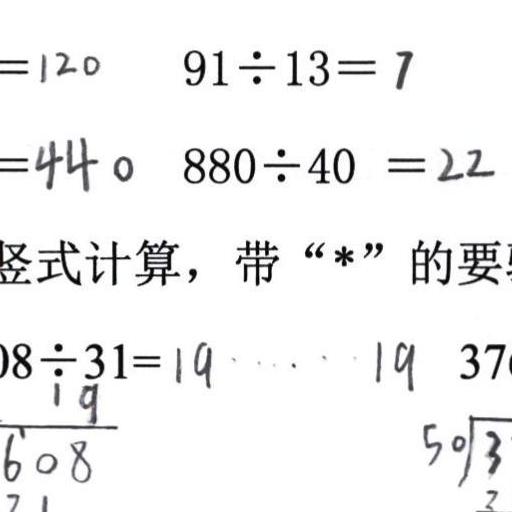 =120 91÷13=7
=440 880÷40 =22
竖式计算，带“*”的要
08÷31=19……19 37
19
608 50 3
31 3